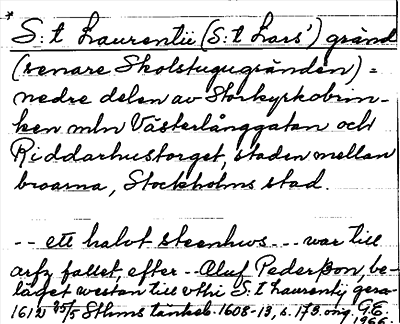 * S:t Laurentii (S:t Lars') gränd
(senare Skolstugugränden) =
nedre delen av Storkyrkobrin-
ken mln Västerlånggatan och
Riddarhustorget, staden mellan
broarna, Stockholms stad.
-- ett halvt steenhws --- war till
arfz fallet, efter -- Oluf Pederßon, be-
läget westan till vthi S:t Laurentij gera
1612 25/5 Sthms tänkeb. 1608-13, s. 173. orig. G.E.
1966.